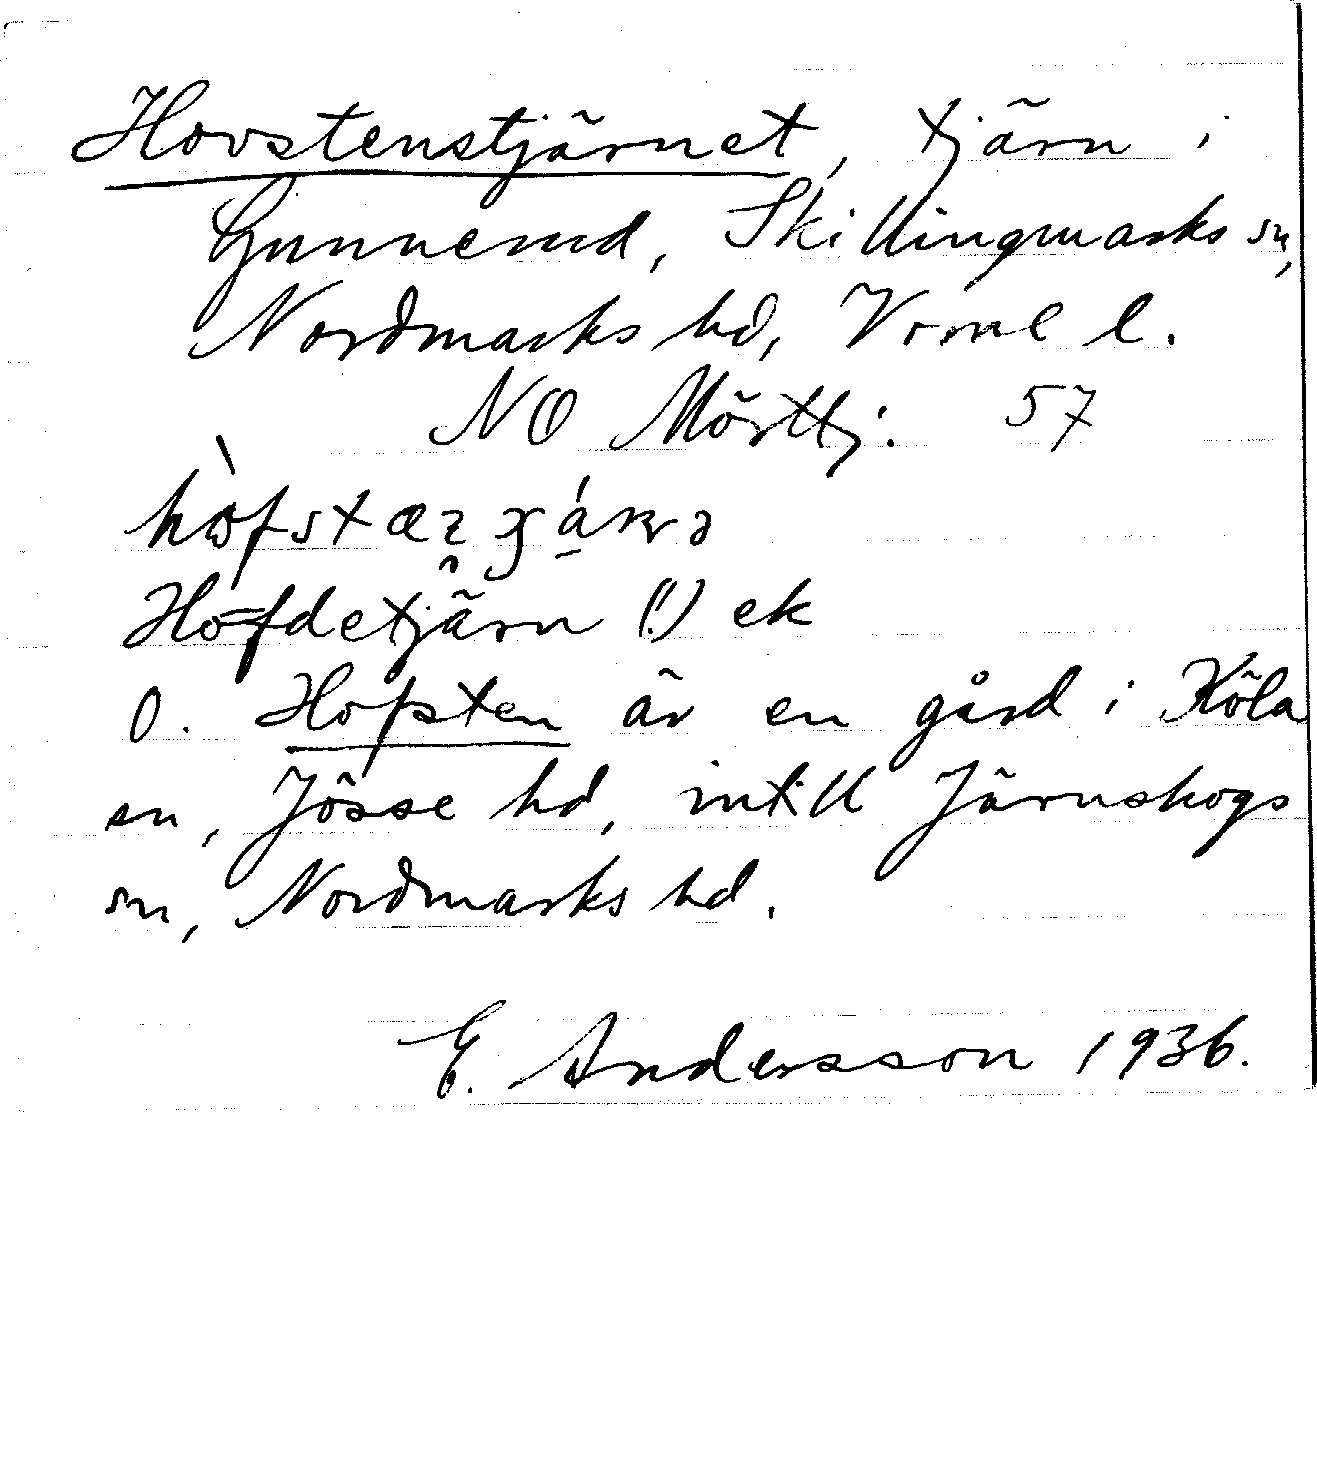 Hovstenstjärnet, tjärn i
Gunnerud, Skillingmarks sn,
Nordmarks hd, Vrml l.
NO Mörttj: 57
Höfdetjärn (!) ek
O. Hofsten är en gård i Köla
sn, Jösse hd, intill Järnskogs
sn, Nordmarks hd.
E. Andersson 1936.